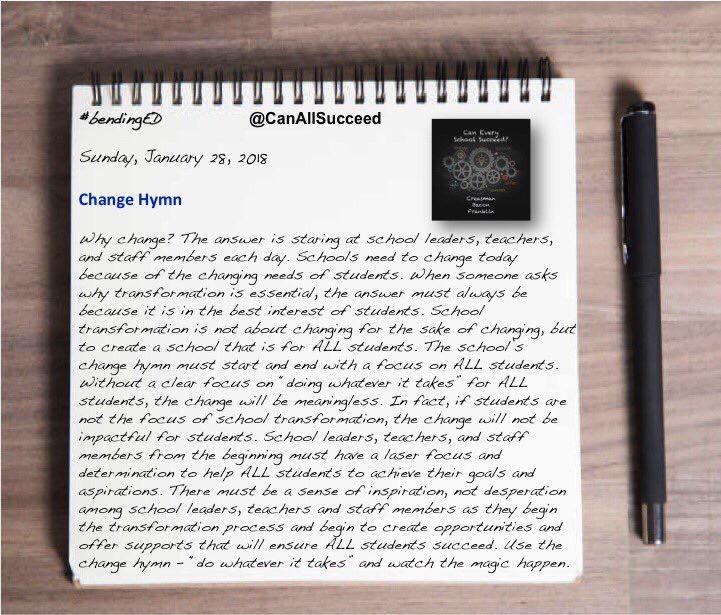 #bendingED
@CanAllSucceed
Can Every
School Succeed?
Creasman
Bacon
Franklin
Sunday, January 28, 2018
Change Hymn
Why change? The answer is staring at school leaders, teachers,
and staff members each day. Schools need to change today
because of the changing needs of students. When someone asks
why transformation is essential, the answer must always be
because it is in the best interest of students. School
transformation is not about changing for the sake of changing, but
to create a school that is for ALL students. The school's
change hymn must start and end with a focus on ALL students.
Without a clear focus on "doing whatever it takes" for ALL
students, the change will be meaningless. In fact, if students are
not the focus of school transformation, the change will not be
impactful for students. School leaders, teachers, and staff
members from the beginning must have a laser focus and
determination to help ALL students to achieve their goals and
aspirations. There must be a sense of inspiration, not desperation
among school leaders, teachers and staff members as they begin
the transformation process and begin to create opportunities and
offer supports that will ensure ALL students succeed. Use the
change hymn - "do whatever it takes" and watch the magic happen.